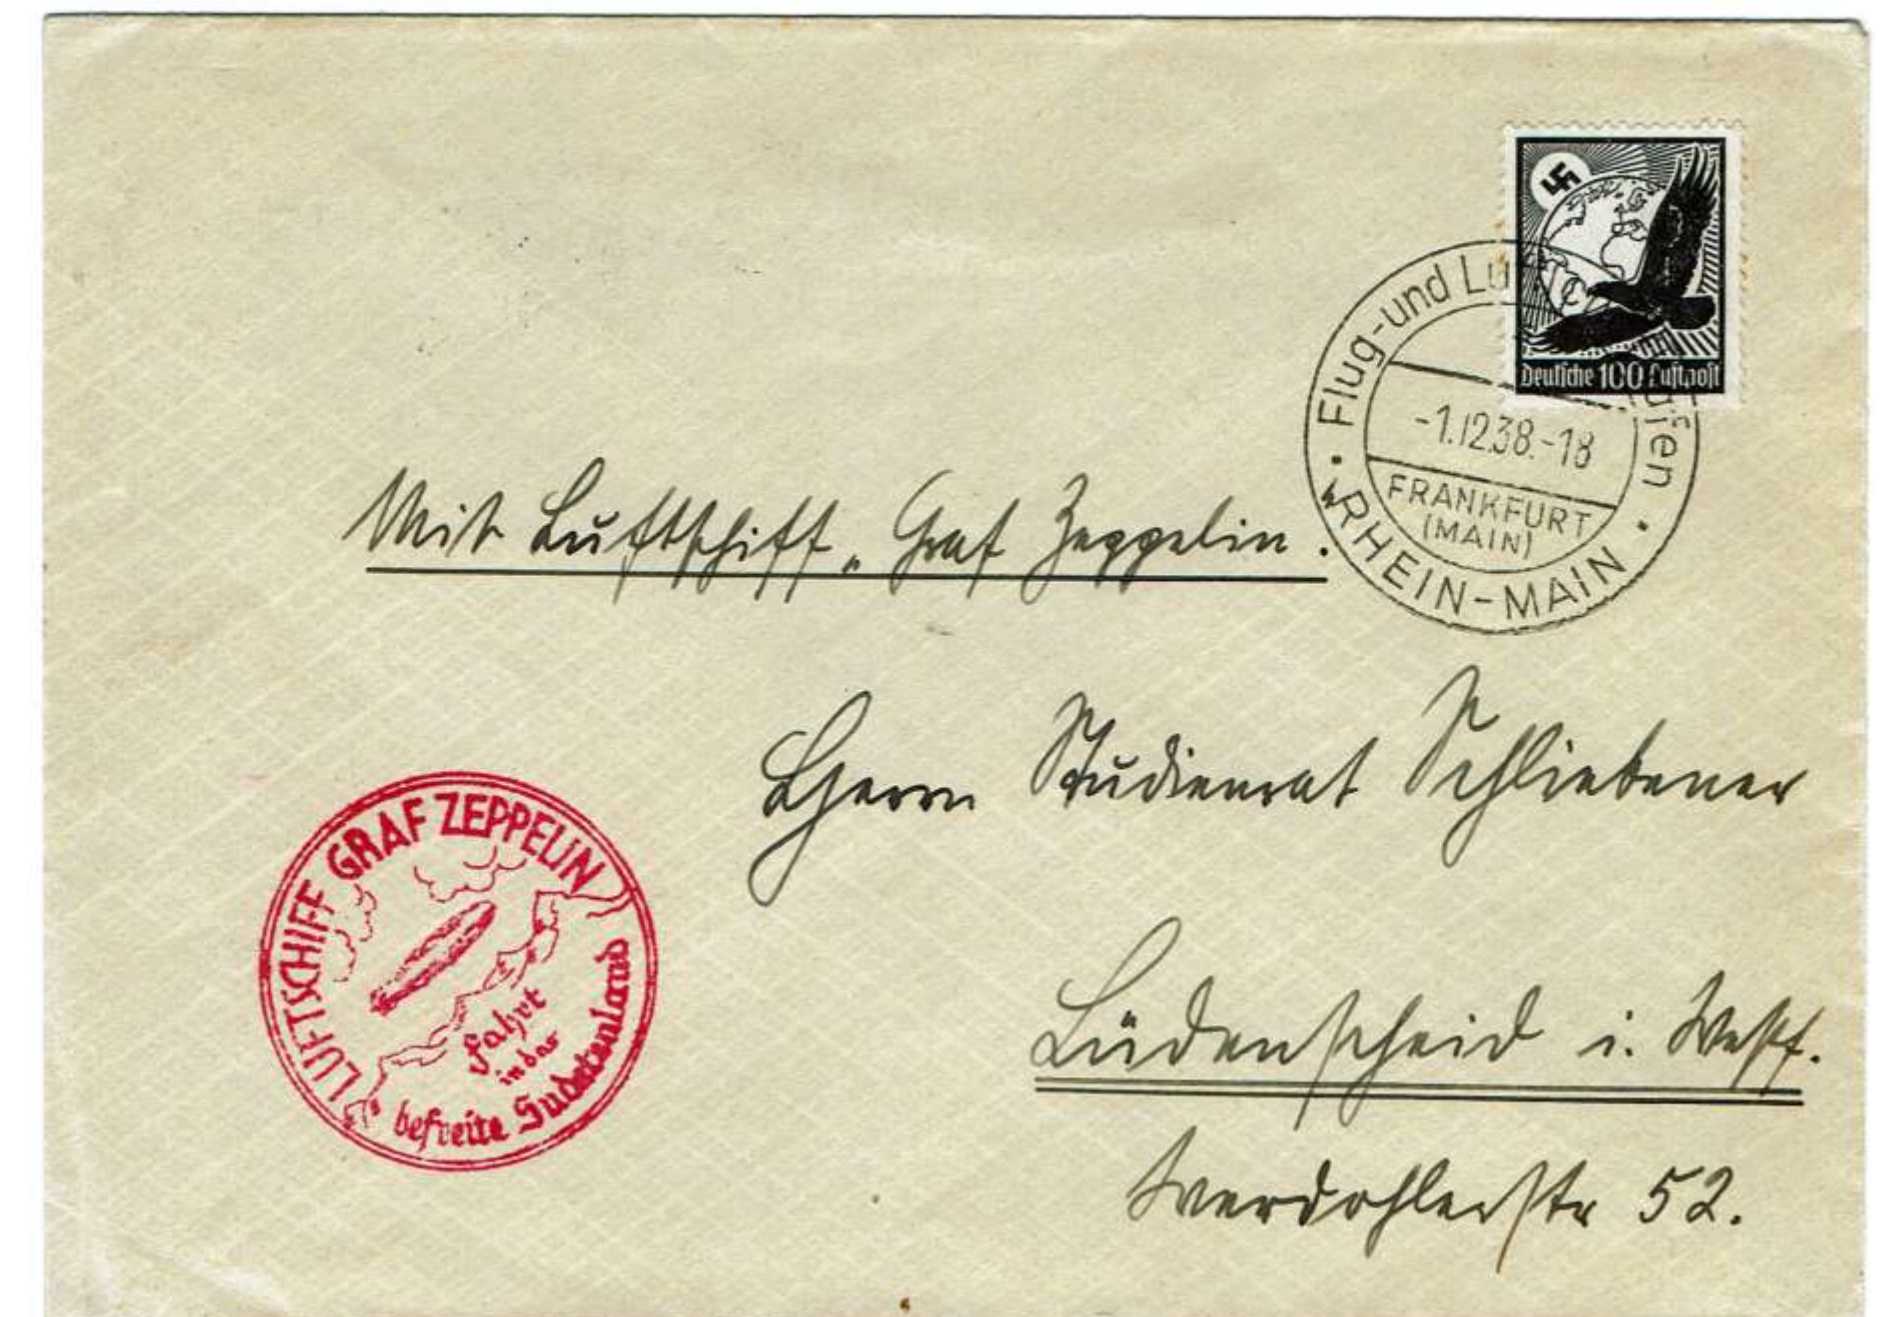 Deutsche 100 Luftpost
Flug- und Lu fen
-1.12.38.-18
FRANKFURT
(MAIN)
RHEIN-MAIN
Mit Luftschiff „Graf Zeppelin.
Herrn Studienrat Schliebener
Lüdenscheid i. Westf.
Werdohlerstr 52.
LUFTSCHIFF GRAF ZEPPELIN
Fahrt
in das
befreite Sudetenland